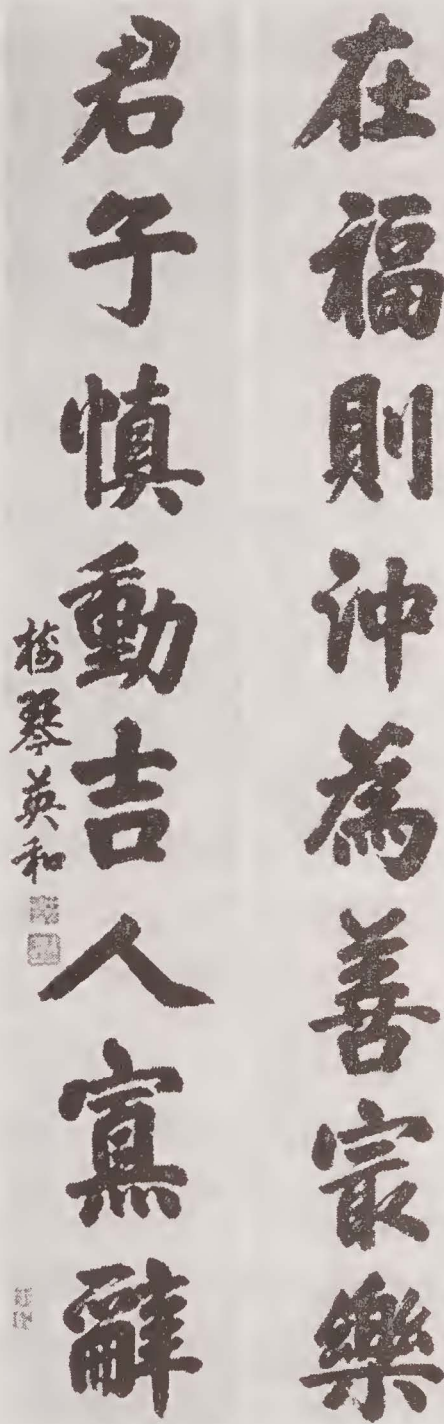 在福則沖為善冣樂
君子慎動吉人寡辭
樹琴英和